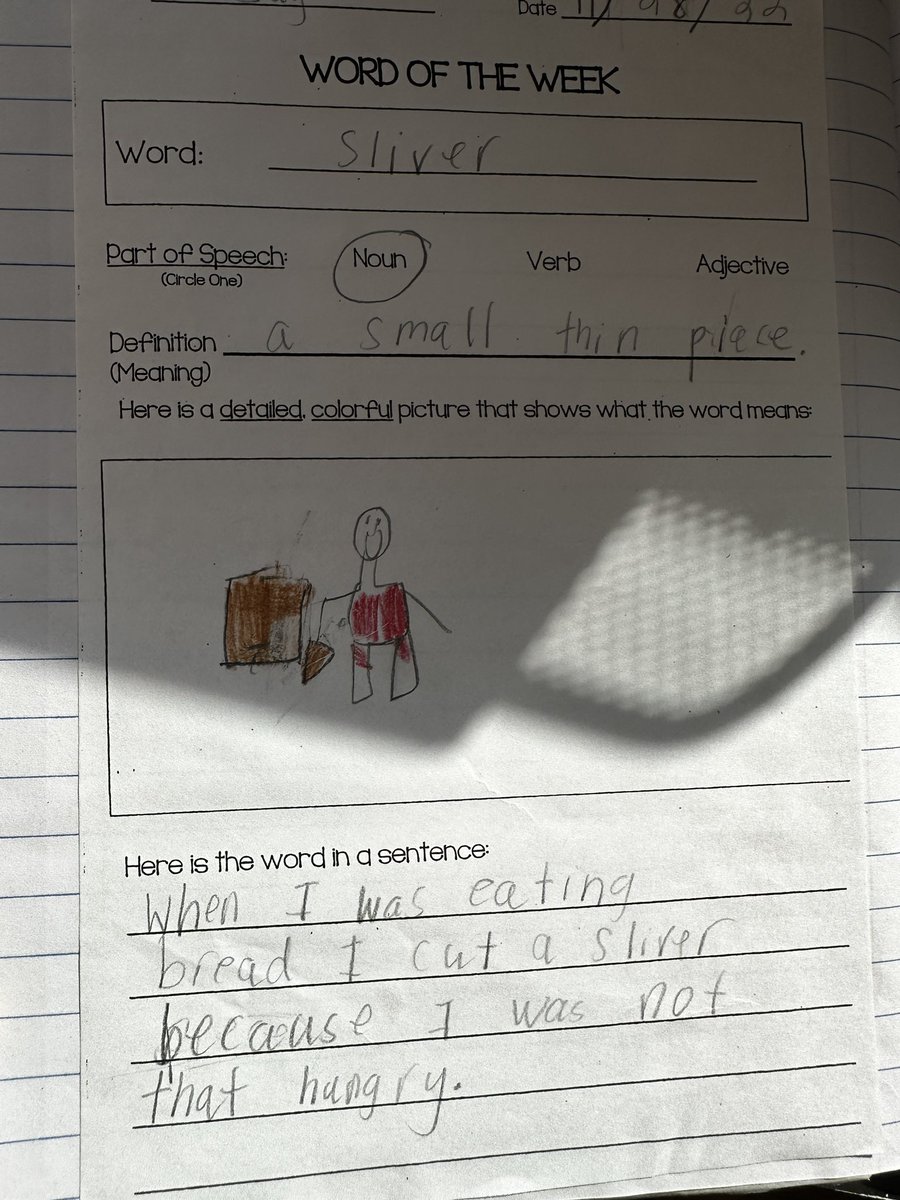 Date 11/ 28/ 22
WORD OF THE WEEK
Word: Sliver
Part of Speech: Noun Verb Adjective
(Circle One)
Definition a small thin piece.
(Meaning)
Here is a detailed, colorful picture that shows what the word means:
Here is the word in a sentence:
When I was eating
bread I cut a sliver
because I was not
that hungry.